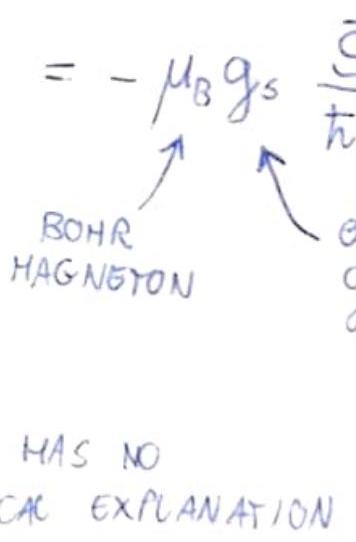 = - μB gs S/ħ
BOHR
MAGNETON
HAS NO
CAL EXPLANATION